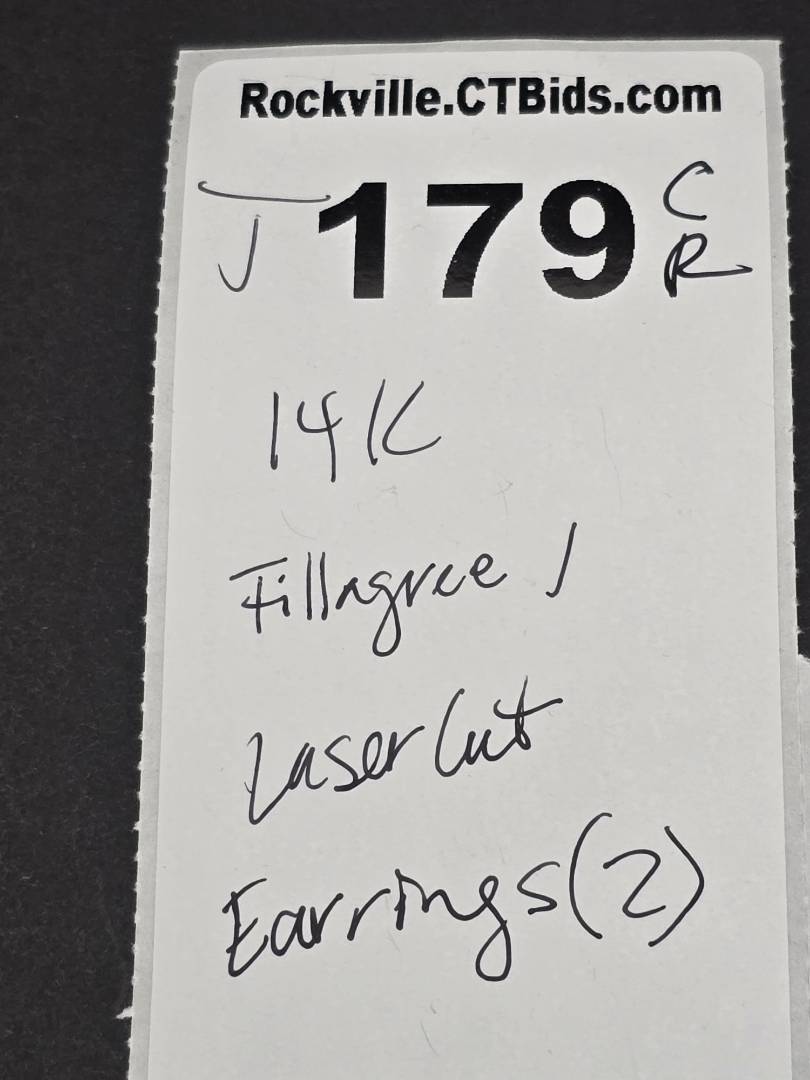 Rockville.CTBids.com
J 179 C
R
14K
Fillagree /
Laser Cut
Earrings (2)